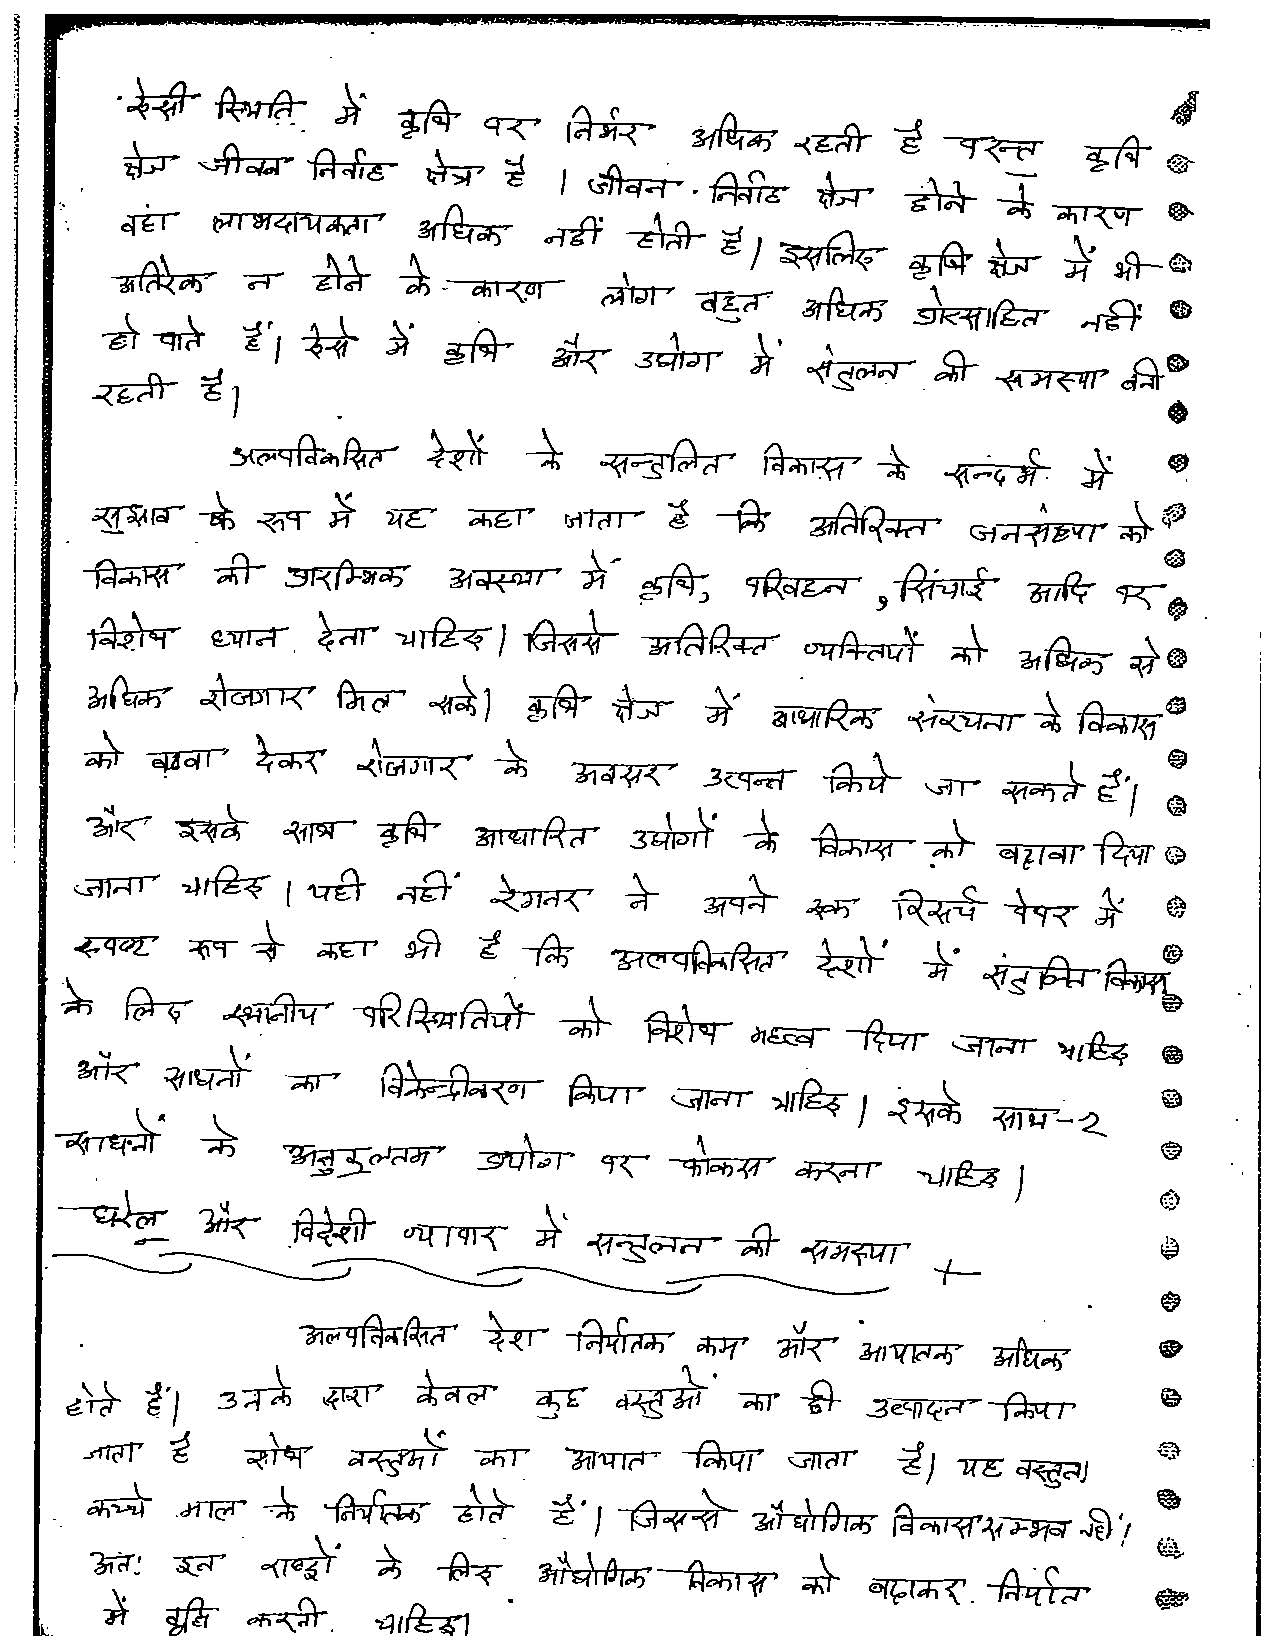 ऐसी स्थिति में कृषि पर निर्भर अधिक रहती है परन्तु कृषि
क्षेत्र जीवन निर्वाह क्षेत्र है । जीवन निर्वाह क्षेत्र होने के कारण
वहां लाभदायकता अधिक नहीं होती है। इसलिए कृषि क्षेत्र में भी
अतिरेक न होने के कारण लोग बहुत अधिक प्रोत्साहित नहीं
हो पाते हैं। ऐसे में कृषि और उद्योग में संतुलन की समस्या बनी
रहती है।
अल्पविकसित देशों के सन्तुलित विकास के सन्दर्भ में
सुझाव के रूप में यह कहा जाता है कि अतिरिक्त जनसंख्या को
विकास की प्रारम्भिक अवस्था में कृषि, परिवहन, सिंचाई आदि पर
विशेष ध्यान देना चाहिए। जिससे अतिरिक्त व्यक्तियों को अधिक से
अधिक रोजगार मिल सके। कृषि क्षेत्र में आधारिक संरचना के विकास
को बढवा देकर रोजगार के अवसर उत्पन्न किये जा सकते हैं।
और इसके साथ कृषि आधारित उद्योगों के विकास को बढ़ावा दिया
जाना चाहिए । यही नहीं रेगनर ने अपने एक रिसर्च पेपर में
स्पष्ट रूप से कहा भी है कि अल्पविकसित देशों में संतुलित विकास
के लिए स्थानीय परिस्थितियों को विशेष महत्व दिया जाना चाहिए
और साधनों का विकेन्द्रीकरण किया जाना चाहिए। इसके साथ-२
साधनों के अनुकूलतम प्रयोग पर फोकस करना चाहिए।
घरेलू और विदेशी व्यापार में सन्तुलन की समस्या
अल्पविकसित देश निर्यातक कम और आयातक अधिक
होते हैं। उनके द्वारा केवल कुछ वस्तुओं का ही उत्पादन किया
जाता है शेष वस्तुओं का आयात किया जाता है। यह वस्तुतः
कच्चे माल के निर्यातक होते हैं। जिससे औद्योगिक विकास सम्भव नहीं।
अतः इन राष्ट्रों के लिए औद्योगिक विकास को बढ़ाकर निर्यात
में वृद्धि करनी चाहिए।